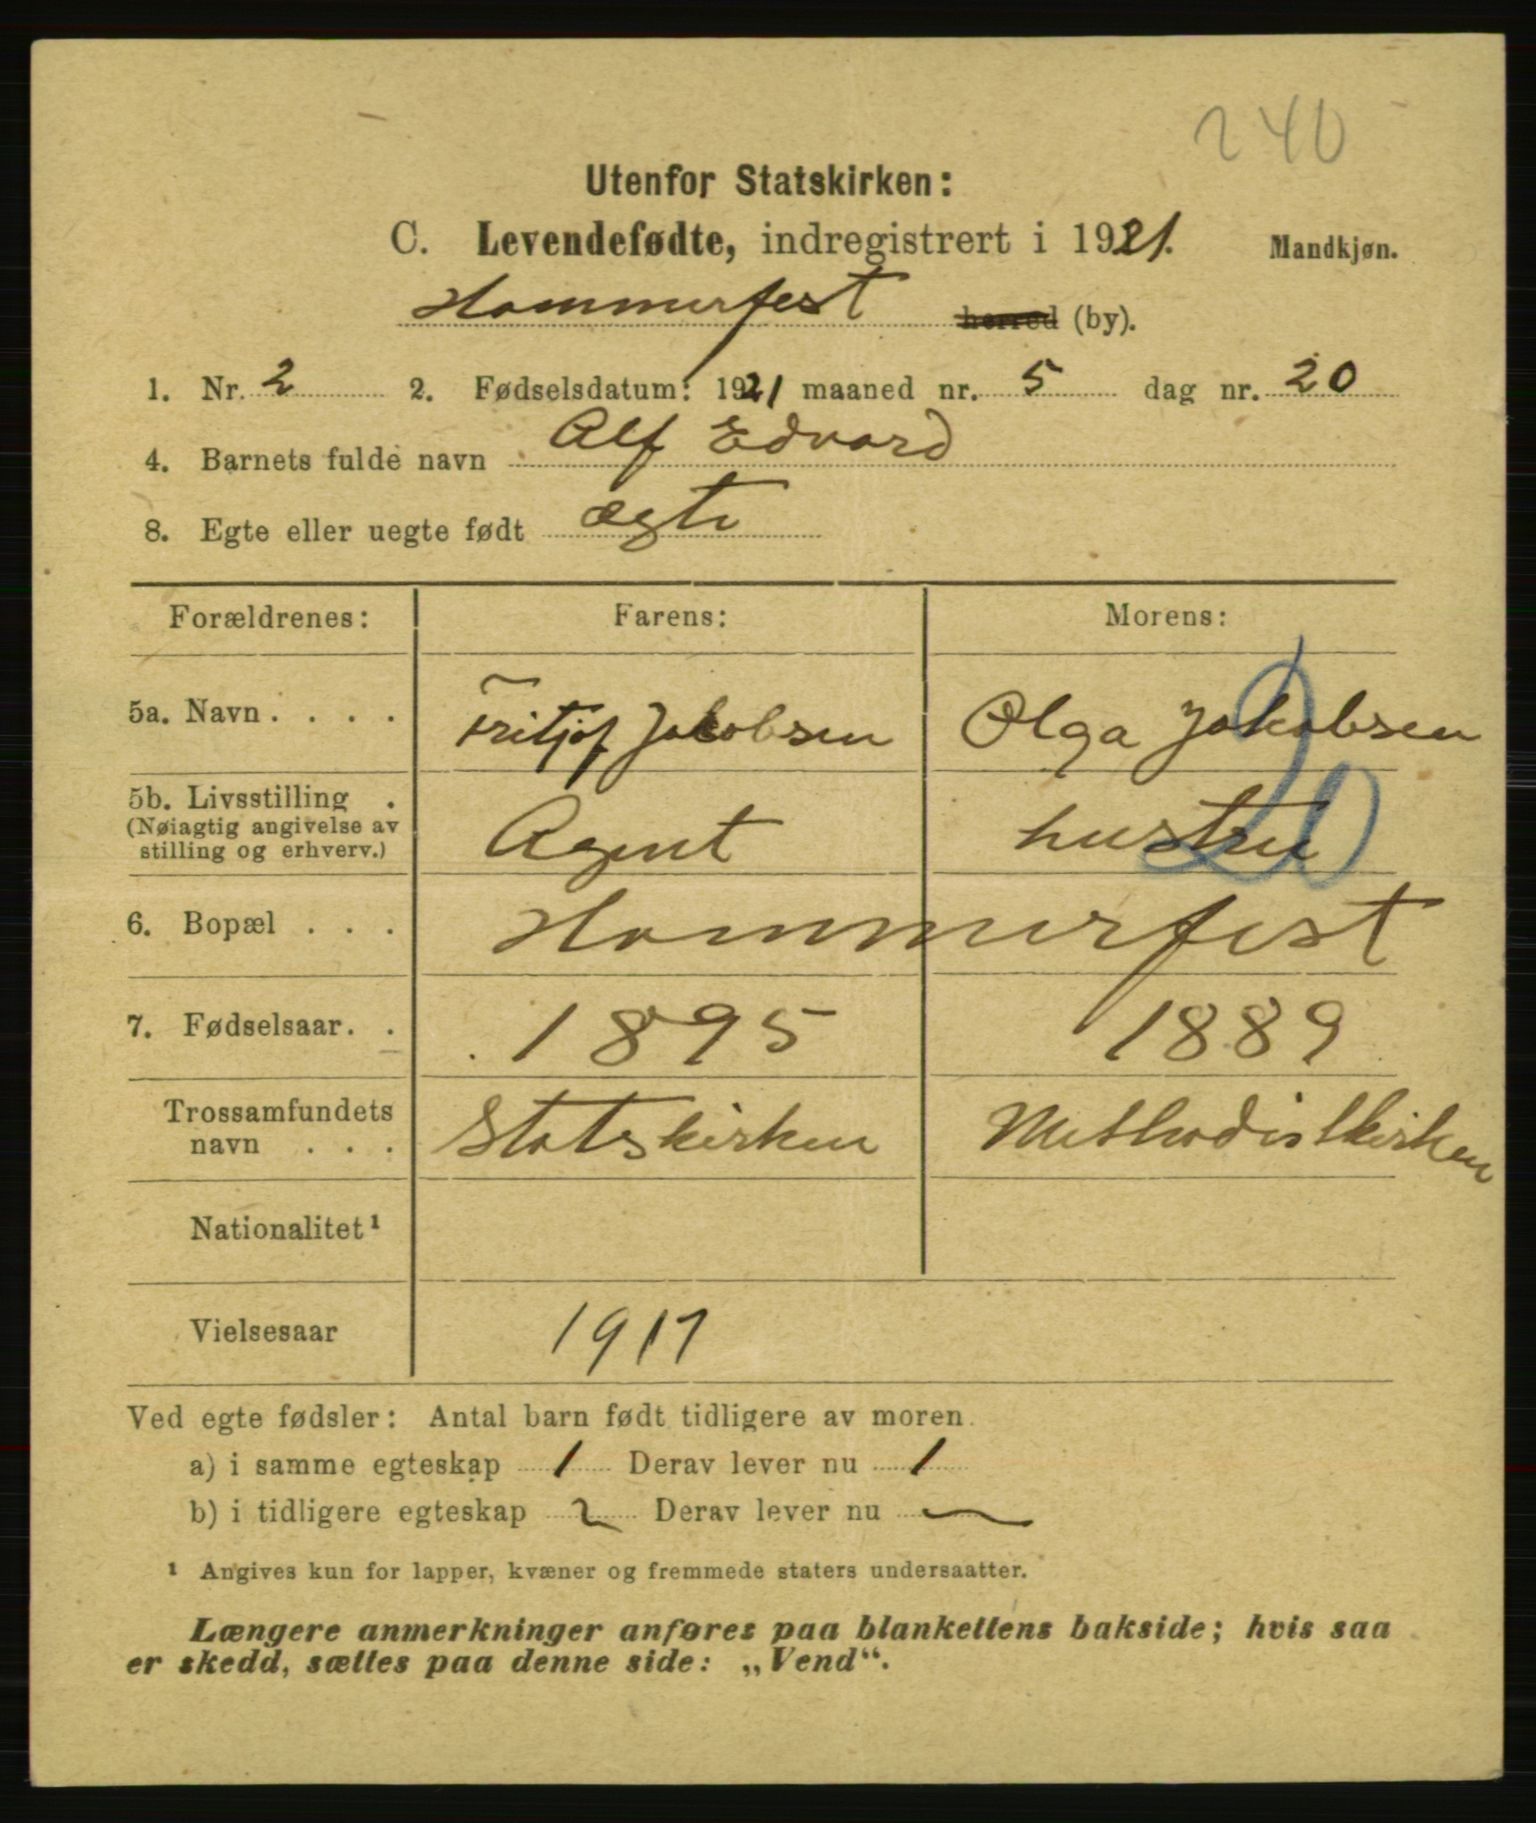 240
Utenfor Statskirken:
C. Levendefødte, indregistrert i 1921. Mandkjøn.
Hammerfest herred (by).
1. Nr. 2 2. Fødselsdatum: 1921 maaned nr. 5 dag nr. 20
4. Barnets fulde navn Alf Edvard
8. Egte eller uegte født ægte
Forældrenes: Farens: Morens:
5a. Navn . . . . Fritjof Jakobsen Olga Jakobsen
5b. Livsstilling .
(Nøiagtig angivelse av
stilling og erhverv.) Agent hustru
20
6. Bopæl . . . Hammerfest
7. Fødselsaar. . 1895 1889
Trossamfundets
navn . . . Statskirken Methodistkirken
Nationalitet¹
Vielsesaar 1917
Ved egte fødsler: Antal barn født tidligere av moren.
a) i samme egteskap 1 Derav lever nu 1
b) i tidligere egteskap 2 Derav lever nu —
¹ Angives kun for lapper, kvæner og fremmede staters undersaatter.
Længere anmerkninger anføres paa blankettens bakside; hvis saa
er skedd, sættes paa denne side: „Vend“.